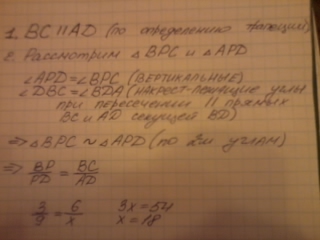 1. BC || AD (по определению трапеции)
2. Рассмотрим △ BPC и △ APD
∠APD=∠BPC (ВЕРТИКАЛЬНЫЕ)
∠DBC=∠BDA (накрест-лежащие углы
при пересечении || прямых
BC и AD секущей BD)
⇒ △BPC ~ △APD (по 2м углам)
⇒ BP/PD = BC/AD
3/9 = 6/x 3x=54
x=18